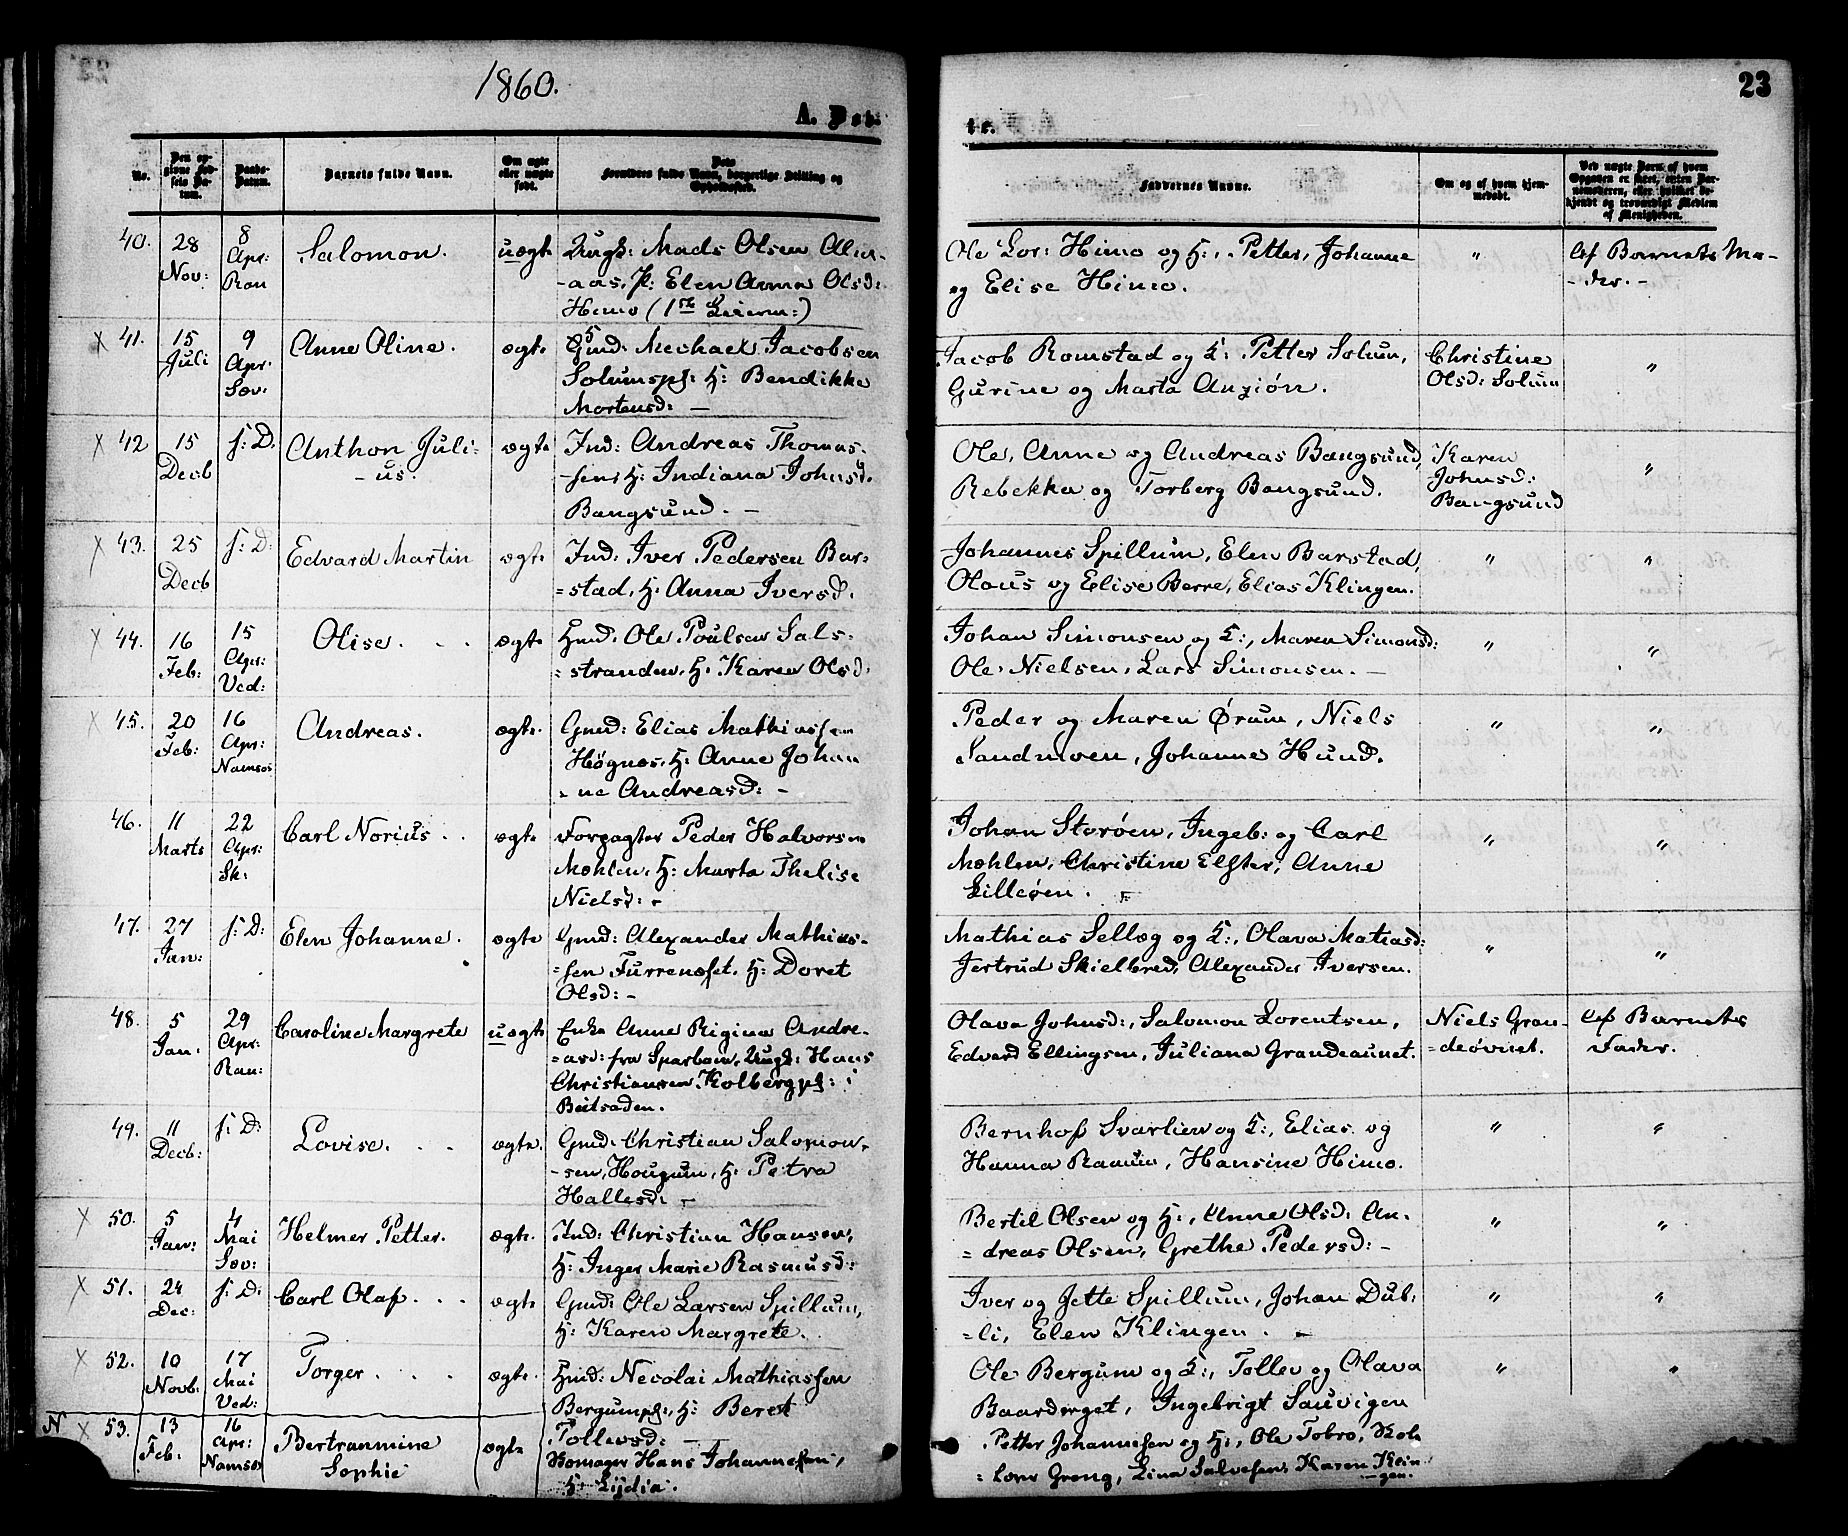 1860.
A. Døb-
te.
23
No.
Den opgivne Fødsels Datum.
Daabs-Datum.
Barnets fulde Navn.
Om ægte eller uægte født.
Forældres fulde Navn, borgerlige Stilling og Opholdssted.
Faddernes Navne.
Om og af hvem hjemmedøbt.
40. 28 Nov: 8 Apr: Ran Salomon. uægt Ungk: Mads Olsen
-aas, P: Elen Anna Olsd:
Himo (1ste Leierm:)
Ole Lor: Himo og H:, Petter, Johanne
og Elise Himo.
" Af Barnets Mo-
-der. -
X 41. 15 Juli 9 Apr. Sæv: Anne Oline. ægte Gmd: Mechael Jacobsen
Solumspl: H: Bendikke
Mortensd: -
Jacob Romstad og K: Petter Solum,
Gurine og Marta Anzión.
Christine
Olsd: Solum
"
X 42 15 Decb f: D. Anthon Juli-
- us. ægte Ind: Andreas Thomas-
-sen, H: Indiana Johnsd.
Bangsund. -
Ole, Anne og Andreas Bangsund,
Rebekka og Torberg Bangsund.
Karen
Johnsd:
Bangsund
"
X 43. 25 Decb f: D: Edvard Martin ægte Ind: Iver Pedersen Bar-
=stad, H: Anna Iversd.
Johannes Spillum, Elen Barstad,
Olaus og Elise Berre, Elias Klingen.
" "
X 44. 16 Feb: 15 Apr: Ved: Olise. . . ægte Hmd: Ole Poulsen Sals-
=stranden, H: Karen Olsd:
Johan Simonsen og K:, Maren Simonsd:
Ole Nielsen, Lars Simonsen. -
" "
X 45. 20 Feb: 16 Apr: Namsos Andreas. ægte. Gmd: Elias Mathiassen
Høgnes, H: Anne Johan
- ne Andreasd: -
Peder og Maren Ørum, Niels
Sandmoen, Johanne Hund.
" "
46. 11 Marts 22 Apr: Sk: Carl Norius . . ægte Forpagter Peder Halvorsen
Mæhlen, H: Marta Thelise
Nielsd: -
Johan Storøen, Ingeb: og Carl
Mæhlen, Christine Elster, Anne
Lilleøen.
" "
47. 27 Jan: f: D: Elen Johanne. ægte Gmd: Alexander Mathias-
=sen Furrenæset, H: Doret
Olsd: -
Mathias Sellæg og K:, Olava Matiasd:
Jertrud Skielbred, Alexander Iversen.
" "
48. 5 Jan: 29 Apr: Ran: Caroline Margrete uægte Enke Anne Rigina Andre-
=asd: fra Sparboen, Ungk: Hans
Christiansen Kolbergpl: i
Beitsaden.
Olava Johnsd:, Salomon Lorentsen,
Edvard Ellingsen, Juliana Grandeaunet.
Niels Gran-
=deøvnet.
Af Barnets
Fader.
49. 11 Decb: f: D: Lovise. . . ægte. Gmd: Christian Salomon-
-sen, Hougum, H: Petra
Hallesd: -
Bernhof Svarlien og K:, Elias og
Hanna Raaum, Hansine Himo.
" "
X 50. 5 Jan: 4 Mai Sæv: Helmer Petter. ægte. Ind: Christian Hansen,
H: Inger Marie Rasmusd:
Bertil Olsen og H:, Anne Olsd: An-
=dreas Olsen, Grethe Pedersd: -
" "
X 51. 24 Dec: f: D: Carl Olaf. . . ægte Gmd: Ole Larsen Spillum,
H: Karen Margrete.
Iver og Jette Spillum, Johan Dub-
=li, Elen Klingen. -
" "
X 52. 10 Novb: 17 Mai Ved: Torger. . . . ægte. Hmd: Necolai Mathiassen
Bergumpl:, H: Beret
Tollevsd: -
Ole Bergum og K:, Tollev og Olava
Baarderget, Ingebrigt Sauvigen
" "
N X 53. 13 Feb: 16 Apr: Namsos Bertranmine
Sophie ægte Skomager Hans Johannesen,
H: Lydia.
Petter Johannesen og H:, Ole Tobro,
Grong, Lina Salvesen, Karen Klin
-gen.